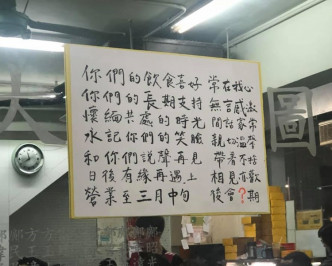 你們的飲食喜好 常在我心
你們的長期支持 無言感激
懷緬共處的時光 閒話家常
永記你們的笑臉 親似溫馨
和你們說聲再見 帶着不捨
日後有緣再遇上 相見亦歡
營業至三月中旬 後會?期
大
圖